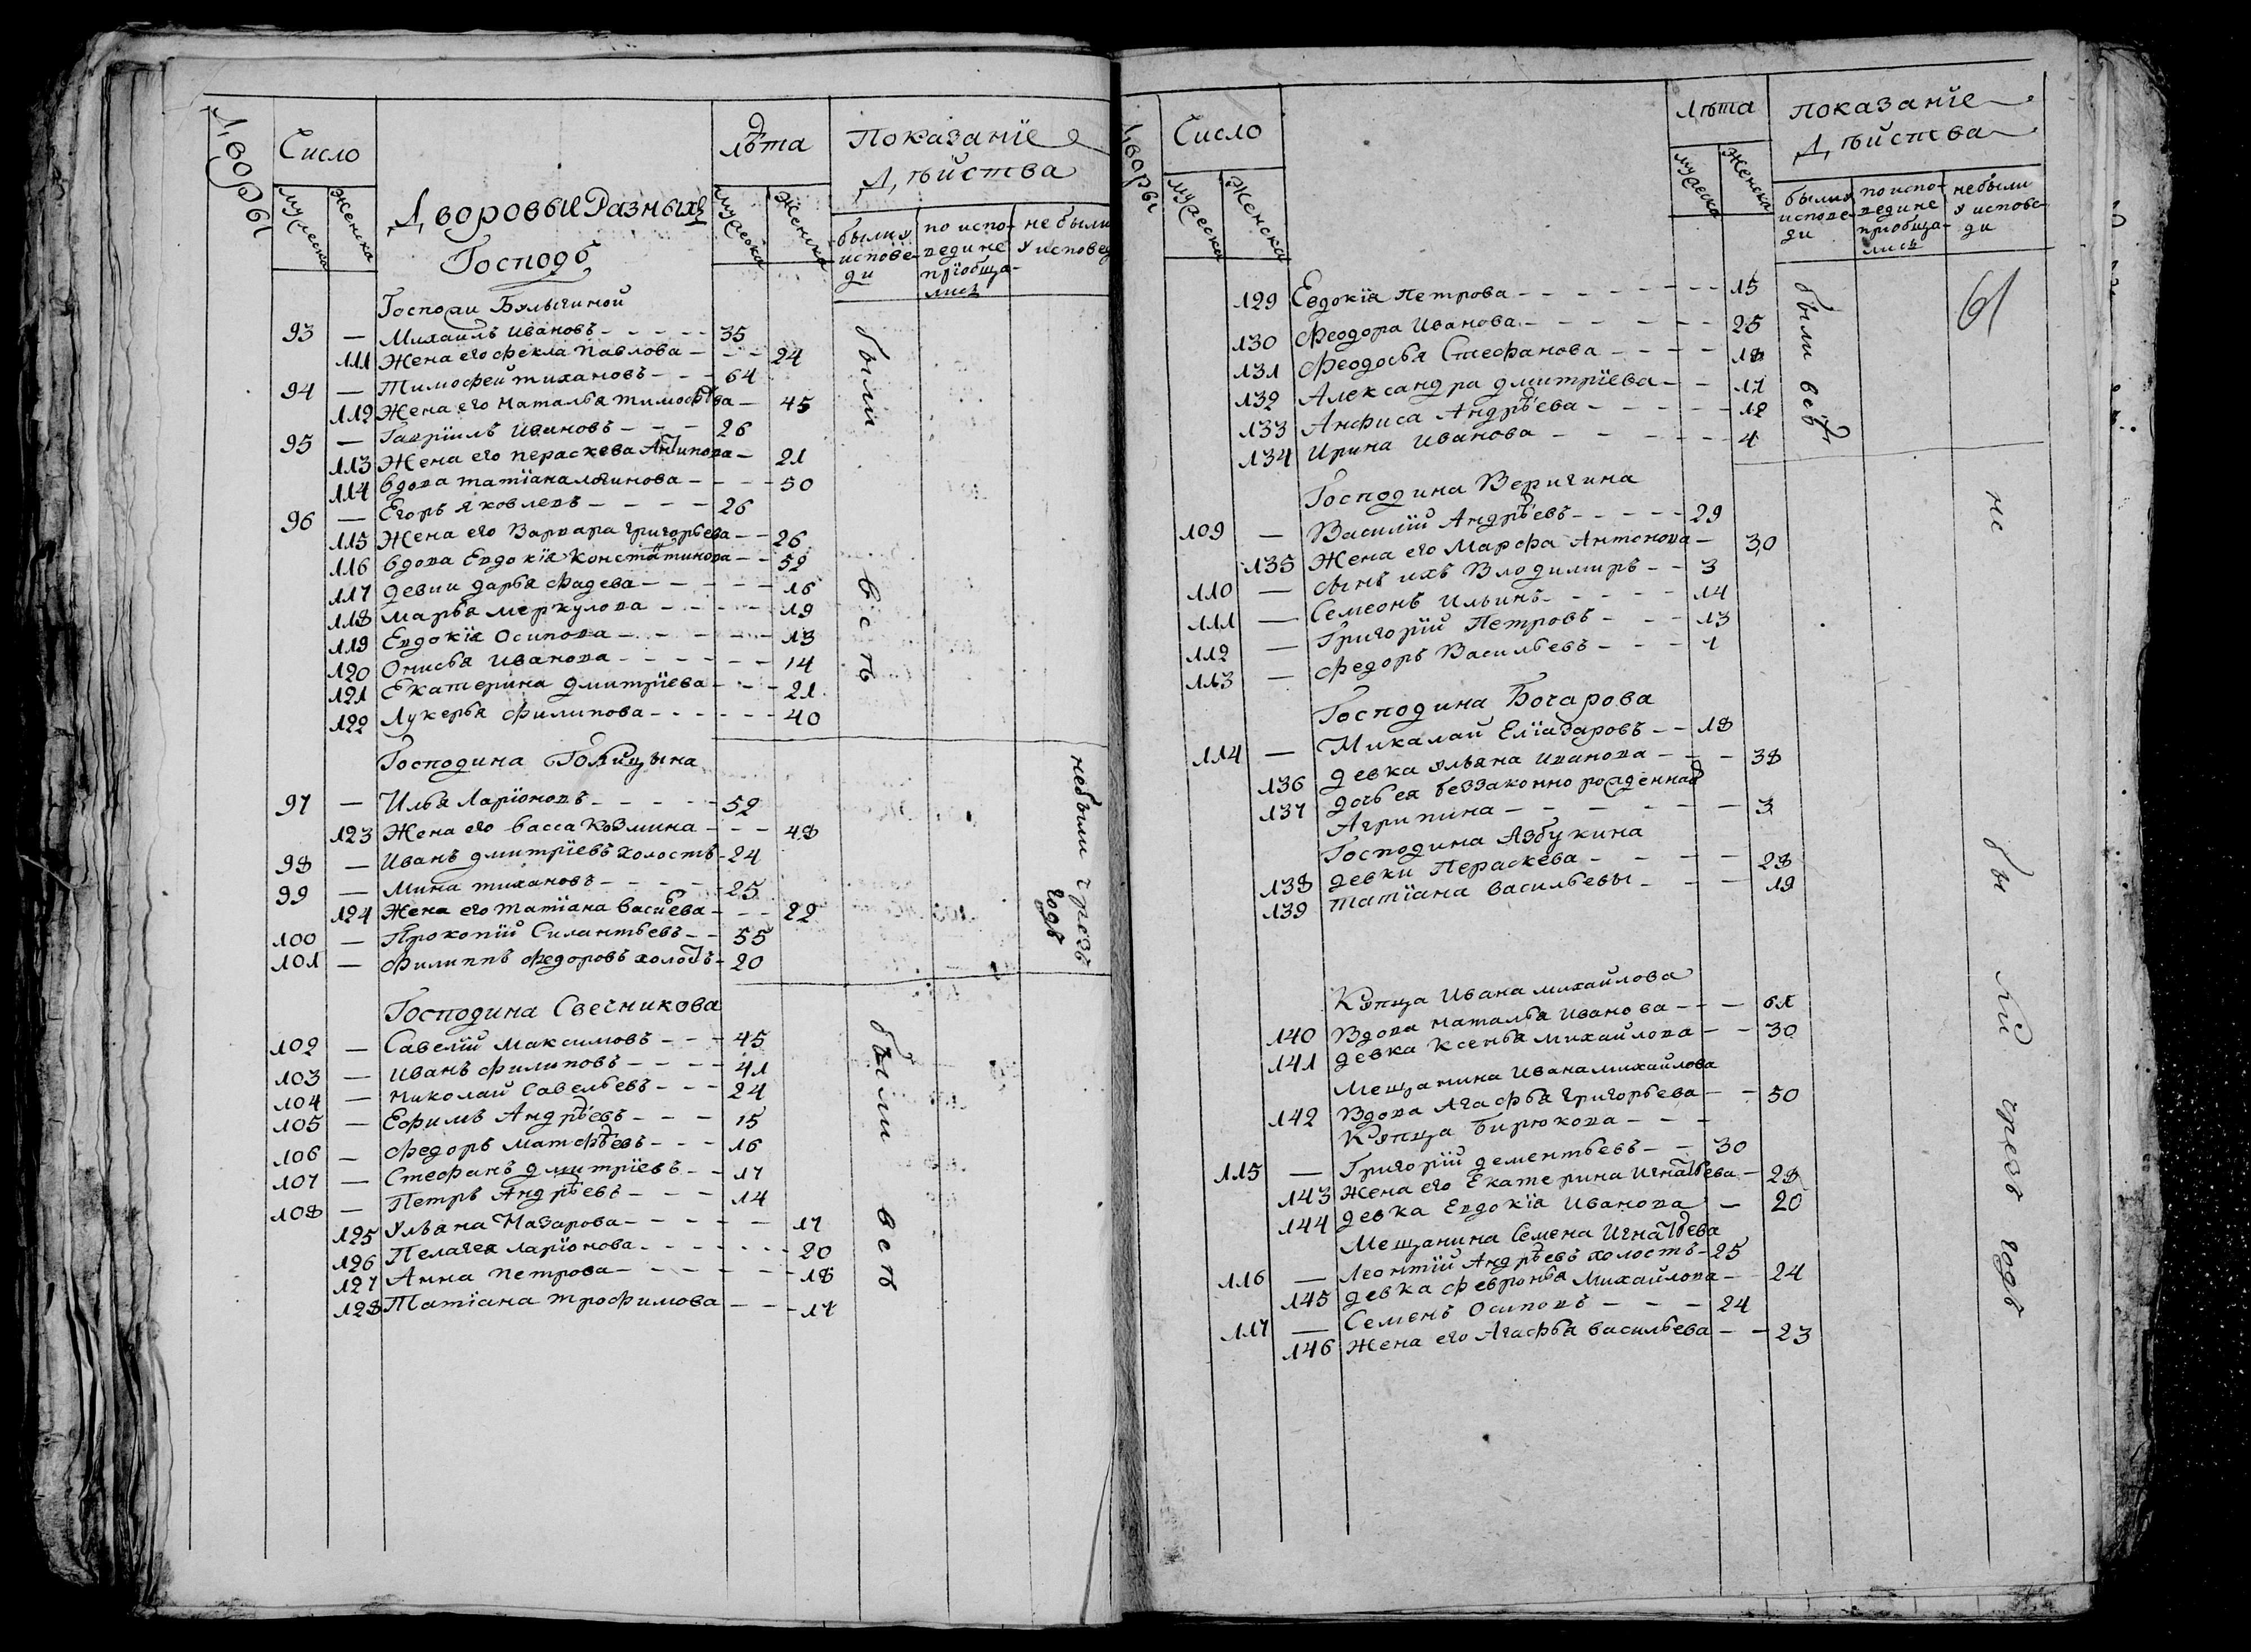 Дворы
Число
Мужеска
Женска
Дворовыи Разныхъ
Господъ
лѣта
Мужеска
Женска
Показанїе
Дѣйства
были у
исповѣ-
ди
по испо-
веди не
прїобща-
лись
не были
у исповед
Госпожи Булыгиной
93 — Михаилъ Ивановъ - - - - - 35
111 Жена его Фекла Павлова - - - 24
94 — Тимофеи тихановъ - - - 64
112 Жена его Наталья тимофѣва - 45
95 — Гаврїилъ Ивановъ - - - 26
113 Жена его пераскева Антипова - 21
114 вдова татїана логинова - - - 50
96 — Егоръ Яковлевъ - - - - 26
115 Жена его Варвара григорьева - - 26
116 вдова Евдокїя Констатинова - - 52
117 девки дарья фадева - - - - - 16
118 марья меркулова - - - - 19
119 Евдокїя Осипова - - - - - 13
120 Онисья Иванова - - - - - - 14
121 Екатерина дмитрїева - - - 21
122 Лукерья филипова - - - - - - 40
были
всѣ
Господина Голицына
97 — Илья Ларїоновъ - - - - - 52
123 Жена его васса Козмина - - - 48
98 — Иванъ дмитрїевъ холостъ - 24
99 — Мина тихановъ - - - - - 25
124 Жена его татїана васильева - - - 22
100 — Прокопїй Силантьевъ - - 55
101 — Филиппъ Федоровъ холостъ - 20
не были чрезъ
годъ
Господина Свечникова
102 — Савелїй Максимовъ - - - 45
103 — Иванъ филиповъ - - - - 41
104 — Николай Савельевъ - - - 24
105 — Ефимъ Андрѣевъ - - - 15
106 — Федоръ Матфѣевъ - - - 16
107 — Стефанъ дмитрїевъ - - 17
108 — Петръ Андрѣевъ - - - 14
125 Ульяна Назарова - - - - - 17
126 Пелагея Ларїонова - - - - - - 20
127 Анна петрова - - - - - - 18
128 Татїана трофимова - - - 17
были
всѣ
Дворы
Число
Мужеска
Женска
лѣта
мужеска
Женска
показанїе
Дѣйства
были у
испове-
ди
по испо-
ведине
приобща-
лись
не были
у испове-
ди
61
129 Евдокїя петрова - - - - - - - 15
130 Феодора Иванова - - - - - - 25
131 Феодосья Стефанова - - - - 18
132 Александра дмитрїева - - 17
133 Анфиса Андрѣева - - - - - 12
134 Ирина Иванова - - - - - - 4
были всѣ
Господина Веригина
109 — Василїй Андрѣевъ - - - - - 29
135 Жена его Марфа Антонова - 30
110 — сынъ ихъ Владимиръ - - 3
111 — Семеонъ Ильинъ - - - - - 14
112 — Григорїй Петровъ - - - 13
113 — Федоръ Васильевъ - - - 1
Господина Бочарова
114 — Микалай Елїазаровъ - - 18
136 девка ульяна Иванова - - - 38
137 дочь ея беззаконно рожденная
Агрипина - - - - - - - 3
Господина Азбукина
138 девки Пераскева - - - - 28
139 татїана васильевы - - - 19
Купца Ивана михайлова
140 Вдова наталья Иванова - - - 61
141 девка Ксенья михайлова - - 30
Мещанина Ивана михайлова
142 Вдова Агафья григорьева - - 50
Купца Бирюкова - - -
115 — Григорїй дементьевъ - - 30
143 Жена его Екатерина Игнатьева - 28
144 девка Евдокїя Иванова - 20
Мещанина Семена Игнатьева
116 — Леонтїй Андрѣевъ холостъ - 25
145 девка Февронья Михайлова - - 24
117 — Семенъ Осиповъ - - - 24
146 Жена его Агафья васильева - - 23
не
были
чрезъ
годъ